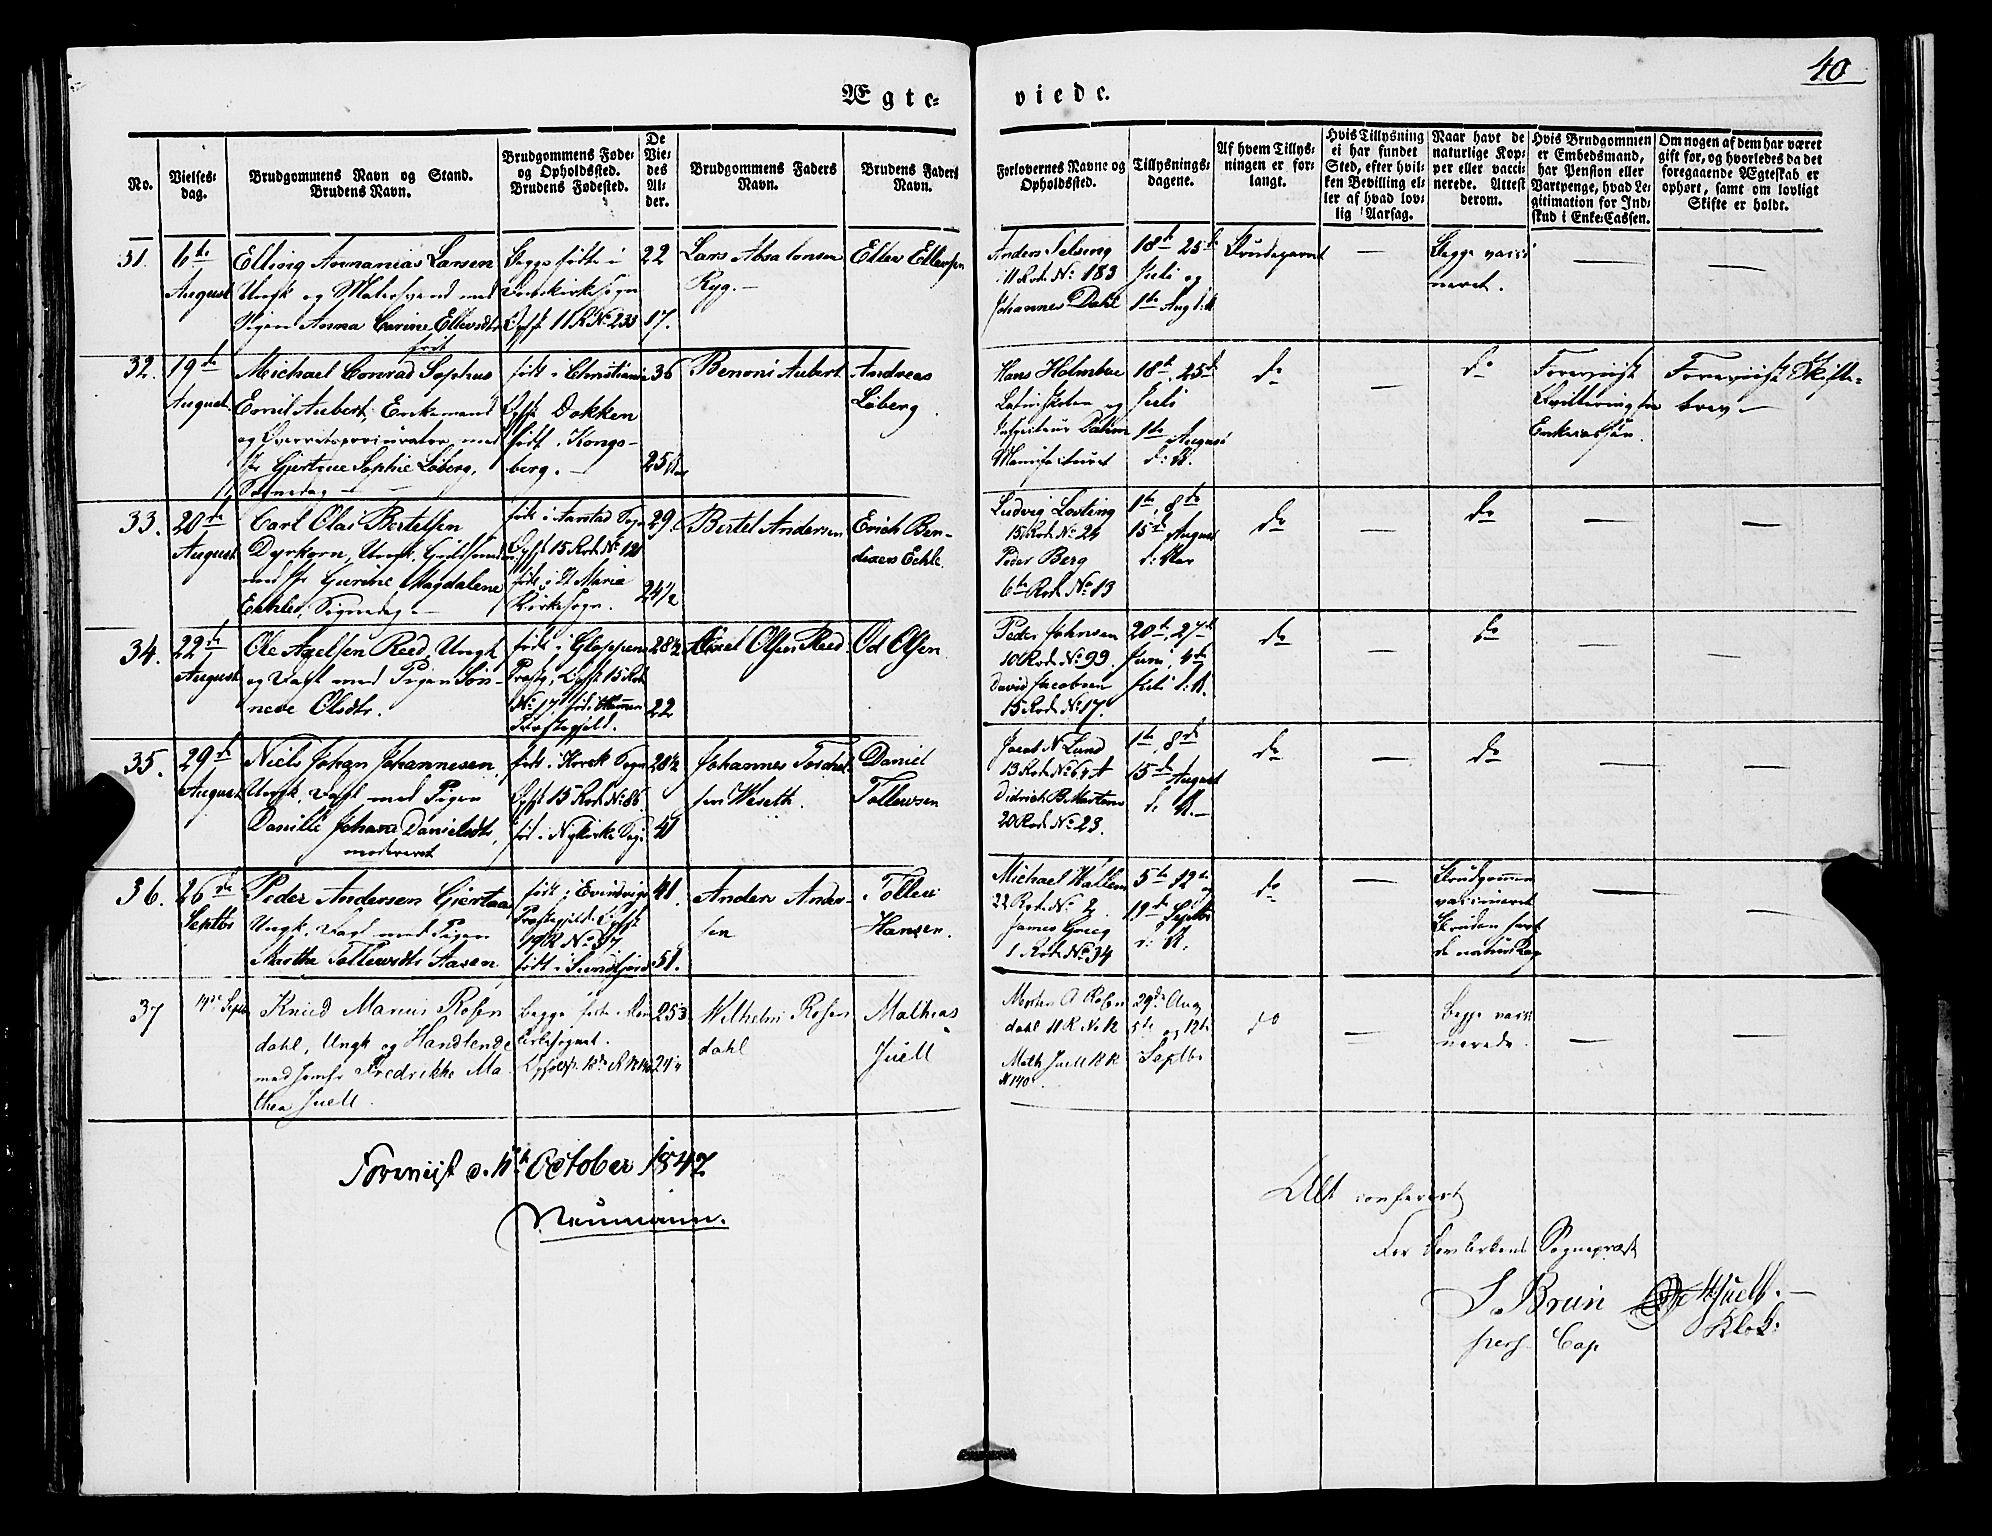 40
Ægte-
viede.
No.
Vielses-
dag.
Brudgommens Navn og Stand.
Brudens Navn.
Brudgommens Føde-
og Opholdssted.
Brudens Fødested.
De
Vie-
des
Al-
der.
Brudgommens Faders
Navn.
Brudens Faders
Navn.
Forlovernes Navne og
Opholdssted.
Tillysnings-
dagene.
Af hvem Tillys-
ningen er for-
langt.
Hvis Tillysning
ei har fundet
Sted, efter hvil-
ken Bevilling el-
ler af hvad lov-
lig Aarsag.
Naar havt de
naturlige Kop-
per eller vacci-
nerede. Attest
derom.
Hvis Brudgommen
er Embedsmand,
har Pension eller
Vartpenge, hvad Le-
gitimation for Ind-
skud i Enke-Cassen.
Om nogen af dem har været
gift før, og hvorledes da det
foregaaende Ægteskab er
ophørt, samt om lovligt
Skifte er holdt.
31.
6te
August
Ellivig Annanias Larsen
Ungk og Malersvend med
Pigen Anna Carine Ellevsdtr
Begge fødte i
Domkirkesogn
Opst 11 R No 233
22
17.
Lars Absalonsen
Ryg.
Ellev Ellevsen
Anders Selsing
11 Rode No 183
Johannes Dahl
18de 25de
Juli og
1te Aug
Brudeparret
Begge vacci
neret.
32.
19de
August
Michael Conrad Sophus
Emil Aubert, Enkemand
og Overretsprocurator med
Jfr Giertrue Sophie Løberg,
født i Christiania
Opst. Dokken
født i Kongs-
berg.
36
25
Benoni Aubert
Andreas
Løberg
Hans Holmboe
Latinskolen og
Dahm
Manufacturet
18de, 25de
Juli
1te August
do
do
Foreviist
Qvittering for
Enkecassen.
Foreviist Skifte-
brev
33.
20de
August
Carl Olas Bertelsen
Dyrkorn, Ungk.
med Jfr Gurine Magdalene
Echle,
født i Aarstad Sogn
Opst 15 Rode No 120
født i St Maria
Kirkesogn.
29.
24½
Bertel Andersen
Erich Ben-
dixen Echle.
Ludvig Losting
15 Rode No 24
Peder Berg
6te Rode No 13
1te, 8de
15de August
do
do
34.
22de
August
Ole Axelsen Reed, Ungk
og Dagl med Pigen Søn-
neve Olsdtr.
født i Gloppen
Præstg, Opst 15 Rode
No 17, født i Hammer
Præstegjeld.
28½
22
Axel Olsen Reed
Od Olsen
Peder Johnsen
10 Rode No 99.
David Jacobsen
15 Rode No 17.
20de, 27de
Juni, 4de
Juli
do
do
35.
29de
August
Niels Johan Johannesen,
Ungk, Dagl med Pigen
Danille Johana Danielsdtr,
modereret
født i Korsk Sogn
Opst 15 Rode No 86.
født i Nykirke Sogn
28½
41
Johannes Torchel-
sen Weseth.
Daniel
Tollevsen
Jacob N Lund
13 Rode No 64 A
Didrich B. Martens
20 Rode No 23.
1te, 8de
15de August
do
do
36.
26de
Septbr
Peder Andersen Giertaas
Ungk, Dagl med Pigen
Marthe Tollevsdtr Aasen
født i Evindvigs
Præstegjeld, Opst
19 R No 37
født i Sundfjord
41.
51.
Anders Ander-
sen
Tollev
Hansen.
Michael Wallem
22 Rode No 2
James Grieg
1 Rode No 34
5te 12te og
19de Septbr
do
Brudgommen
vaccineret
Bruden havt
de naturl Kop
37
Septbr
Knud Marius Rosen
dahl, Ungk og Handlende
med Jomfr Fredrikke Ma
thea Juell.
begge fødte i Dom
kirkesognet.
25
24
Wilhelm Rosen
dahl
Mathias
Juell
Morten A Rosen
dahl 11 R No 12
Math Juell
N 140
29de Aug
5te og 12te
Septbr
do
begge vacci
nerede.
Foreviist d. 11te October 1847
Neumann.
Alt confereret
For Domkirkens Sognepræst
J. Bruun
pers Cap
Juell.
Klok: